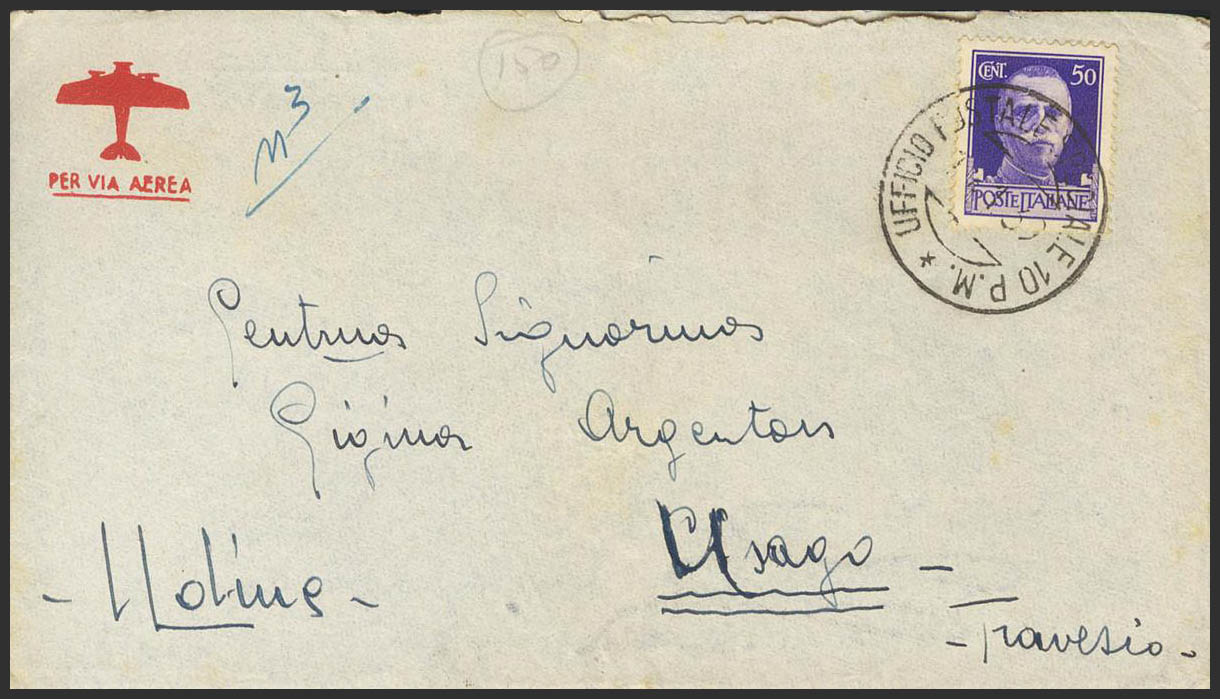 150
CENT. 50
POSTE ITALIANE
UFFICIO POSTALE SPECIALE 10 P.M. *
PER VIA AEREA
n 3
Gentma Signorina
Gigina Argenton
Usago -
- Udine -
- Travesio -